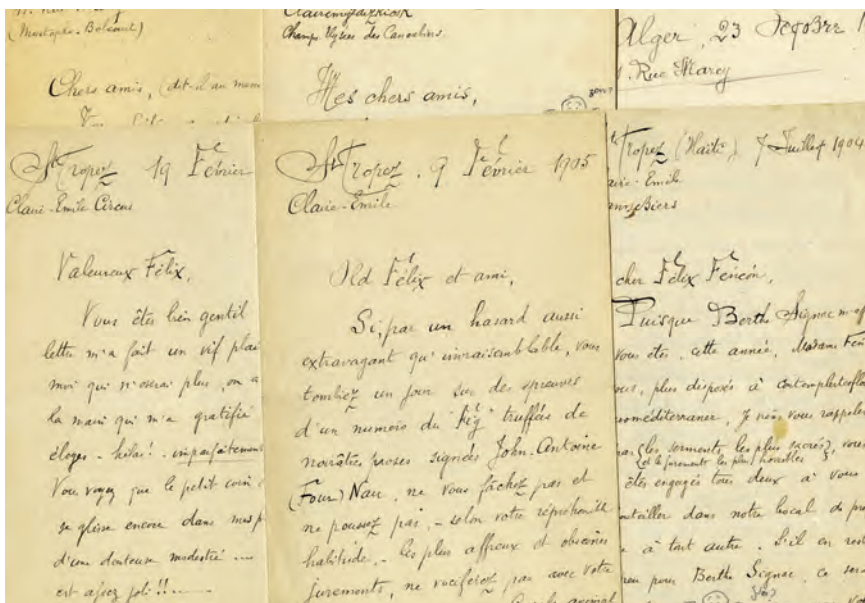 (Mustapha-Belcourt)
Chers amis, (dit-il au
Champs Elysées des Canoubiers
Mes chers amis,
Alger, 23
Rue Marey
St Tropez 19 Février
Claire-Emile Circus
Valeureux Félix,
Vous êtes bien gentil
lettre m'a fait un vif plai
moi qui n'oserai plus, on a
la main qui m'a gratifié
éloges - hélas! - imparfaitement
Vous voyez que le petit coin
se glisse encore dans mes p
d'une douteuse modestie ....
est assez joli!! ....
St Tropez. 9 Février 1905
Claire-Emile
Old Félix et ami,
Si, par un hasard aussi
extravagant qu'invraisemblable, vous
tombiez un jour sur des épreuves
d'un numéro du "Fig" truffées de
noirâtres proses signées John-Antoine
(Four) Nau, ne vous fâchez pas et
ne poussez pas, - selon votre répréhensible
habitude, - les plus affreux et obscènes
jurements, ne vociférez pas avec votre
Tropez (Haïti) 7 Juillet 1904
aire-Emile
cher Félix Fénéon,
Puisque Berthe Signac
vous êtes, cette année, Madame Fén
ous, plus disposés à
je viens vous rappeler
(les serments les plus sacrés), vous
(et les jurements les plus horribles
êtes engagés tous deux à vous
dans notre local de
e à tout autre. S'il en res
pour Berthe Signac, ce sera